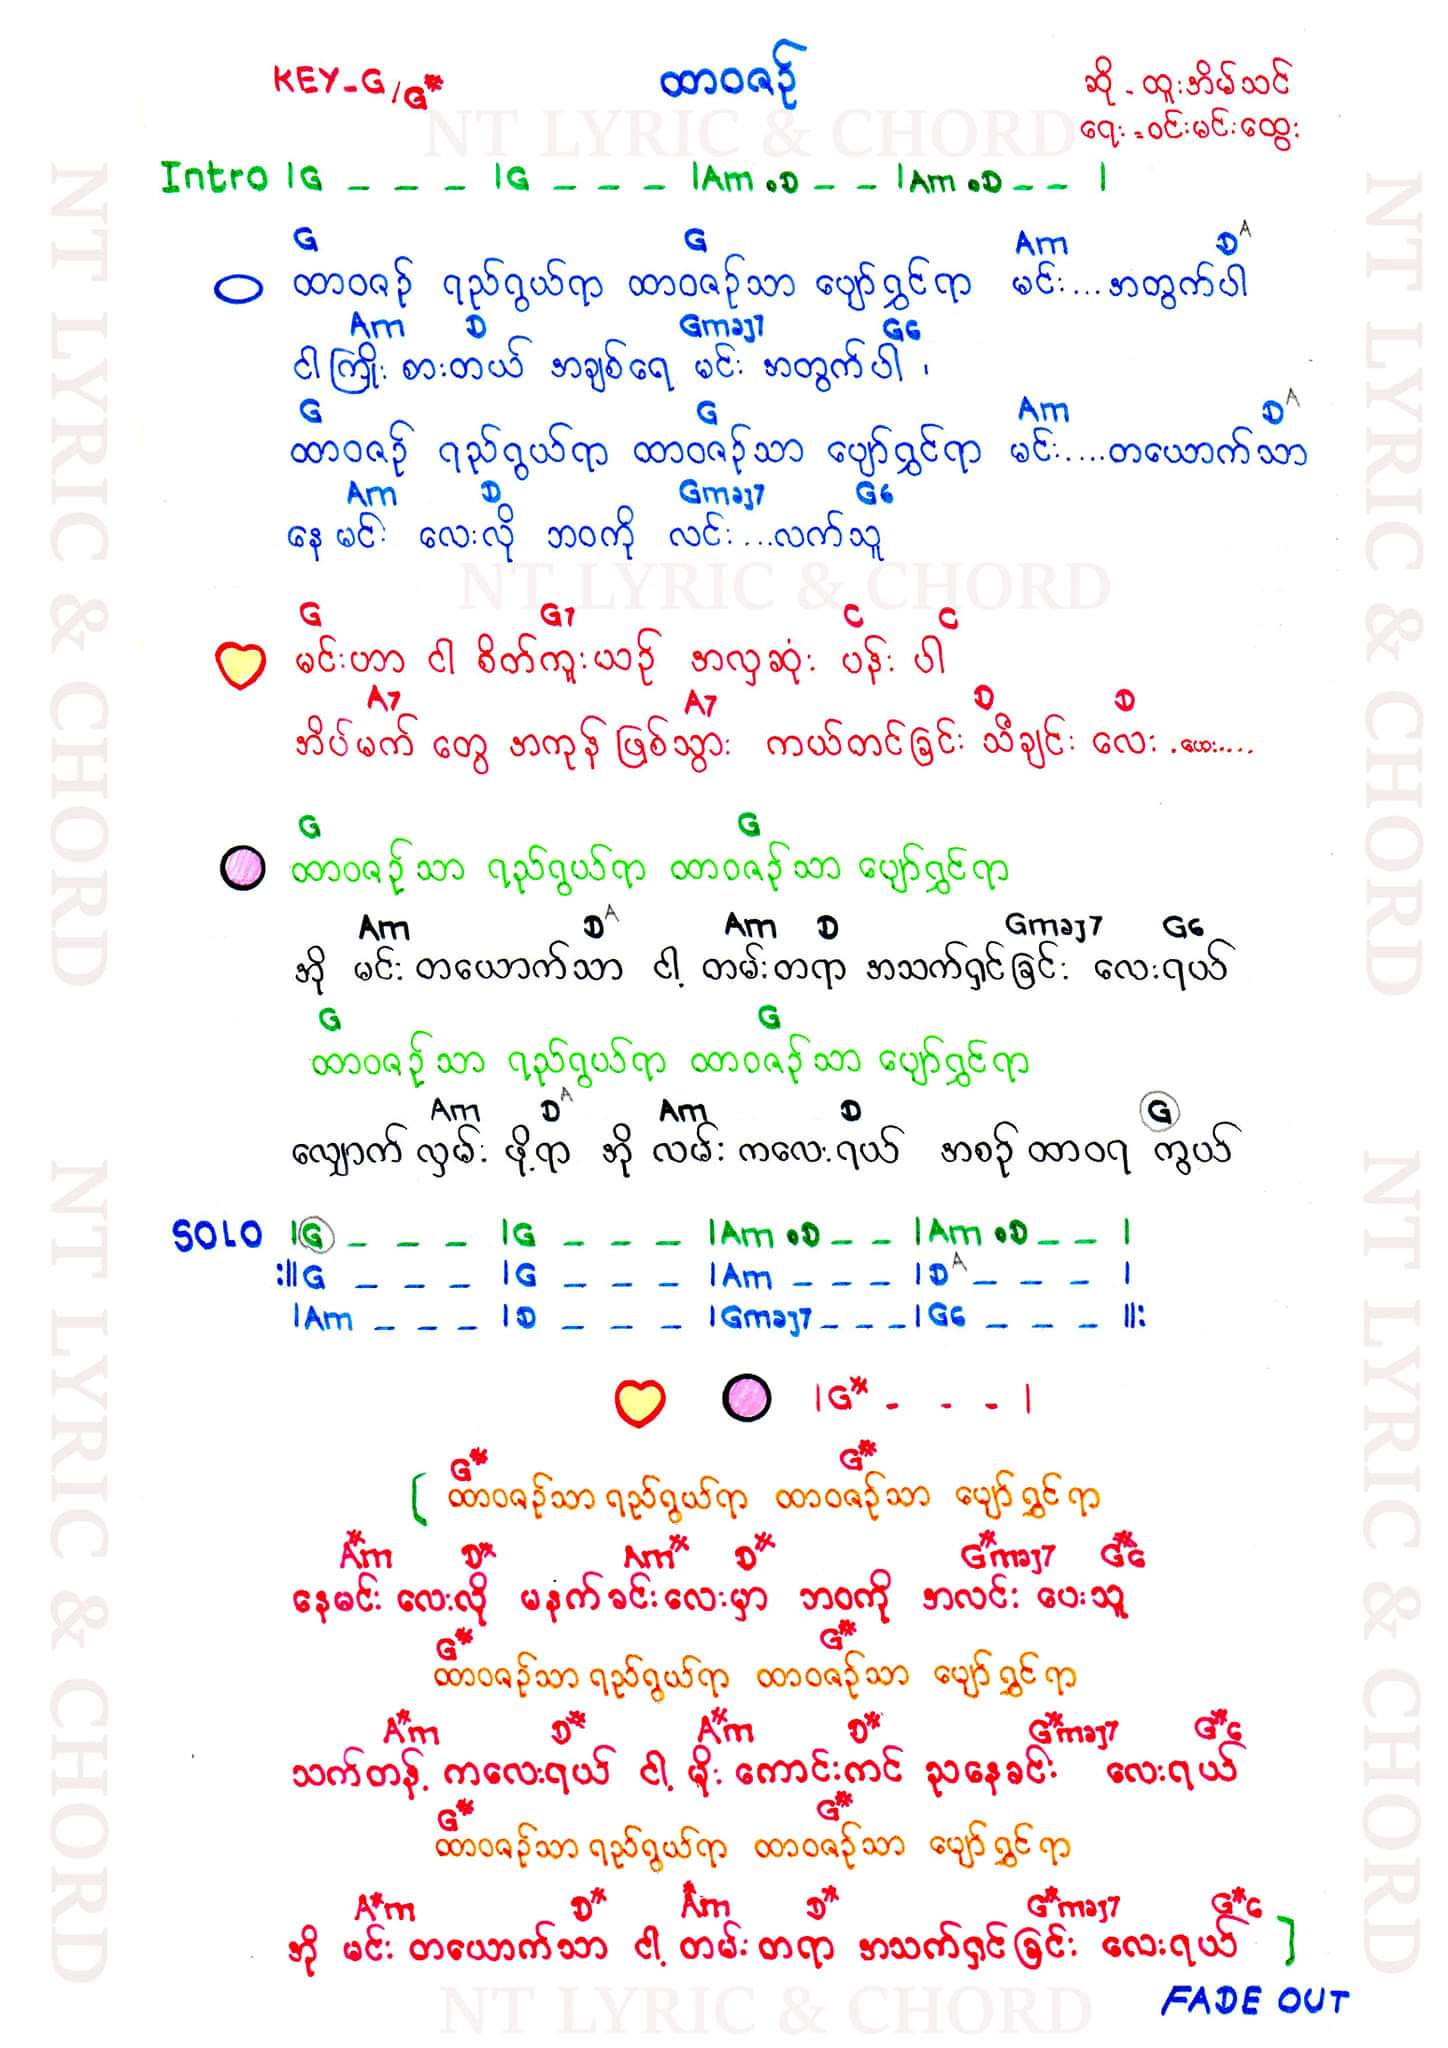 KEY-G/G#
ထာဝစဉ်
ဆို - ထူးအိမ်သင်
ရေး - ဝင်းမင်းထွေး
NT LYRIC & CHORD
Intro |G _ _ _ |G _ _ _ |Am .D _ _ |Am .D _ _ |
G G Am D A
ထာဝဇဉ် ရည်ရွယ်ရာ ထာဝဇဉ်သာ ပျော်ရွှင်ရာ မင်း...အတွက်ပါ
Am D Gmaj7 G6
ငါကြိုးစားတယ် အချစ်ရေ မင်း အတွက်ပါ ၊
G G Am D A
ထာဝဇဉ် ရည်ရွယ်ရာ ထာဝဇဉ်သာ ပျော်ရွှင်ရာ မင်း....တယောက်သာ
Am D Gmaj7 G6
နေမင်း လေးလို ဘဝကို လင်း...လက်သူ
NT LYRIC & CHORD
G G7 C C
မင်းဟာ ငါ စိတ်ကူးယဉ် အလှဆုံး ပန်း ပါ
A7 A7 D D
အိပ်မက် တွေ အကုန် ဖြစ်သွား ကယ်တင်ခြင်း သီချင်း လေး .ဟေး....
G G
ထာဝဇဉ်သာ ရည်ရွယ်ရာ ထာဝဇဉ်သာ ပျော်ရွှင်ရာ
Am D A Am D Gmaj7 G6
အို မင်း တယောက်သာ ငါ့ တမ်းတရာ အသက်ရှင်ခြင်း လေးရယ်
G G
ထာဝဇဉ်သာ ရည်ရွယ်ရာ ထာဝဇဉ်သာ ပျော်ရွှင်ရာ
Am D A Am D G
လျှောက် လှမ်း ဖို့ရာ အို လမ်း ကလေးရယ် အစဉ် ထာဝရ ကွယ်
SOLO |G _ _ _ |G _ _ _ |Am .D _ _ |Am .D _ _ |
:||G _ _ _ |G _ _ _ |Am _ _ _ |D A _ _ _ |
|Am _ _ _ |D _ _ _ |Gmaj7 _ _ _ |G6 _ _ _ ||:
|G# - - - |
G# G#
[ ထာဝဇဉ်သာ ရည်ရွယ်ရာ ထာဝဇဉ်သာ ပျော်ရွှင်ရာ
A#m D# Am# D# G#maj7 G#6
နေမင်း လေးလို မနက်ခင်းလေးမှာ ဘဝကို အလင်း ပေးသူ
G# G#
ထာဝဇဉ်သာ ရည်ရွယ်ရာ ထာဝဇဉ်သာ ပျော်ရွှင်ရာ
A#m D# A#m D# G#maj7 G#6
သက်တန့် ကလေးရယ် ငါ့ မိုး ကောင်းကင် ညနေခင်း လေးရယ်
G# G#
ထာဝဇဉ်သာ ရည်ရွယ်ရာ ထာဝဇဉ်သာ ပျော်ရွှင်ရာ
A#m D# A#m D# G#maj7 G#6
အို မင်း တယောက်သာ ငါ့ တမ်းတရာ အသက်ရှင်ခြင်း လေးရယ် ]
FADE OUT
NT LYRIC & CHORD
NT LYRIC & CHORD
NT LYRIC & CHORD
NT LYRIC & CHORD
NT LYRIC & CHORD